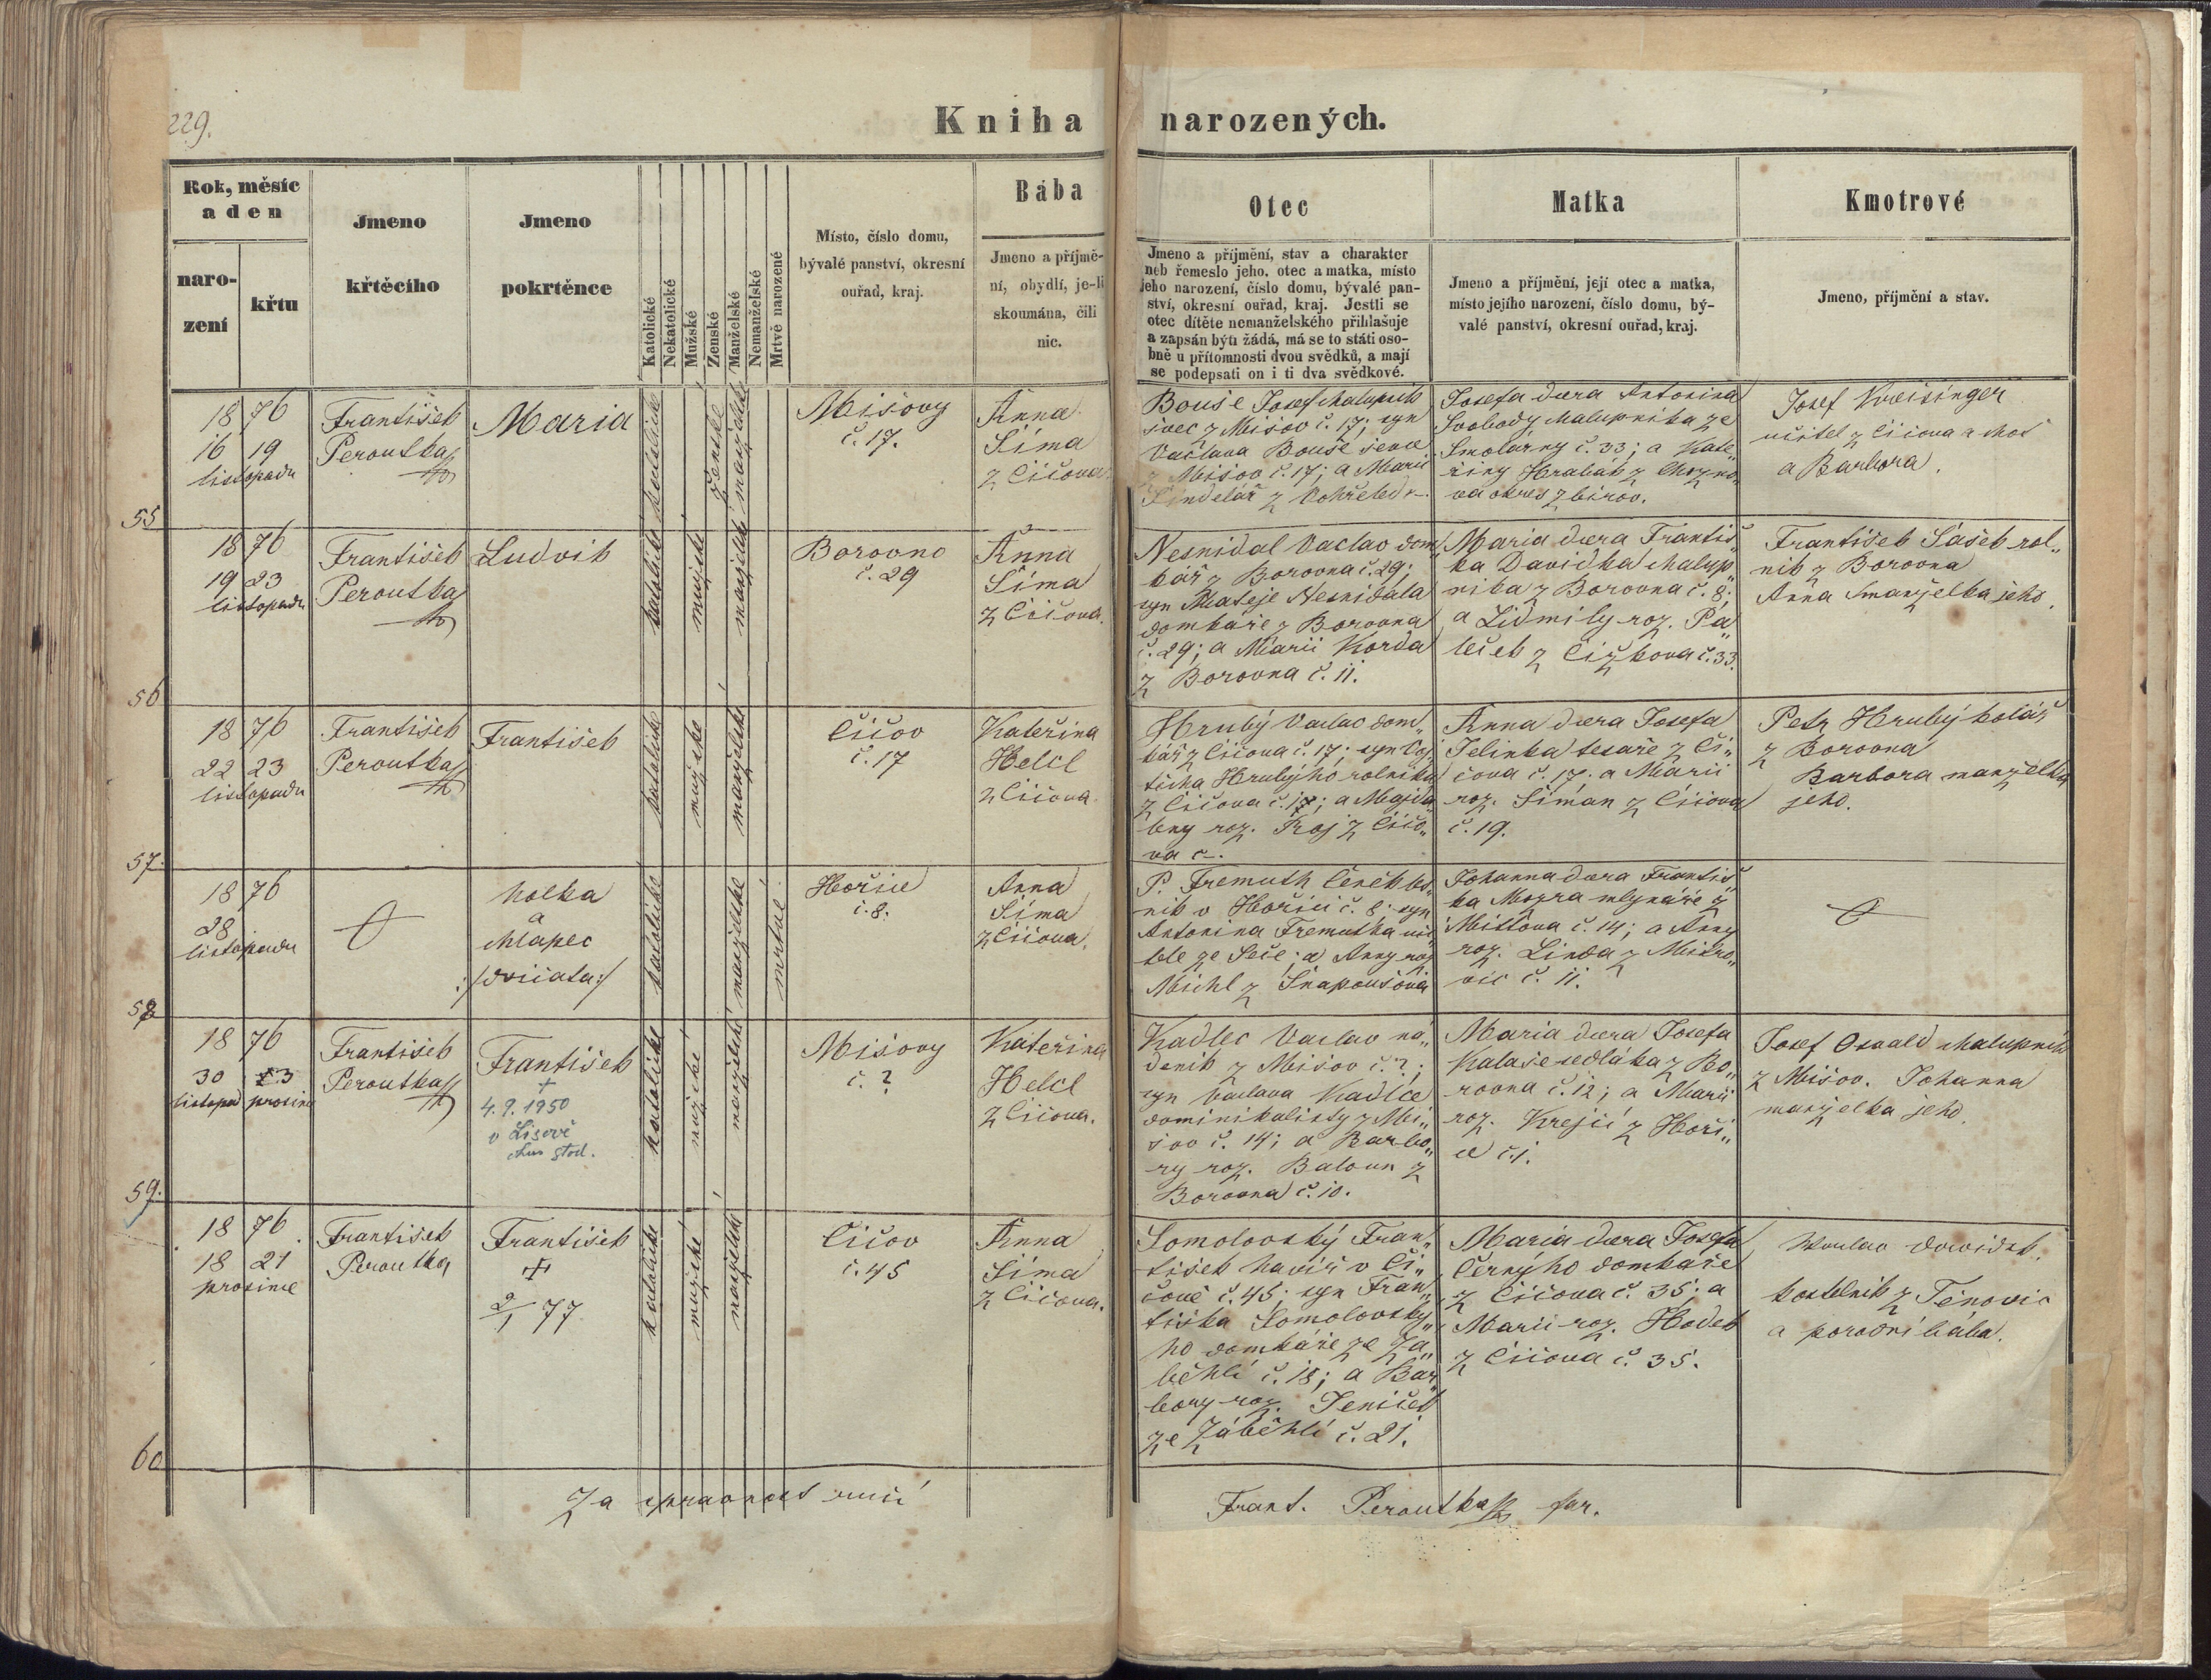 229.
Kniha narozených.
Rok, měsíc
a den
naro-
zení
křtu
Jmeno
křtěcího
Jmeno
pokrtěnce
Katolické
Nekatolické
Mužské
Ženské
Manželské
Nemanželské
Mrtvě narozené
Místo, číslo domu,
bývalé panství, okresní
ouřad, kraj.
Bába
Jmeno a příjmě-
ní, obydlí, je-li
skoumána, čili
nic.
Otec
Jmeno a příjmění, stav a charakter
neb řemeslo jeho, otec a matka, místo
jeho narození, číslo domu, bývalé pan-
ství, okresní ouřad, kraj. Jestli se
otec dítěte nemanželského přihlašuje
a zapsán býti žádá, má se to státi oso-
bně u přítomnosti dvou svědků, a mají
se podepsati on i ti dva svědkové.
Matka
Jmeno a příjmění, její otec a matka,
místo jejího narození, číslo domu, bý-
valé panství, okresní ouřad, kraj.
Kmotrové
Jmeno, příjmění a stav.
1876
16 19
listopadu
55
František
Peroutka
Maria
katolické
ženské
manželské
Mišovy
č. 17.
Anna
Šíma
z Čičova
Bouše Josef chalupník
švec z Mišov č. 17; syn
Václava Bouše ševce
z Mišov č. 17; a Marie
Šindelář z Vohřeled
Josefa dcera Antonína
Svobody chalupníka ze
Smolárny č. 33; a Kate„
řiny Hrabák z
va okres Zbirov.
Josef Kreisinger
učitel z Čičova a choť
a Barbora.
1876
19 23
listopadu
56
František
Peroutka
Ludvik
katolické
mužské
manželské
Borovno
č. 29
Anna
Šíma
z Čičova.
Nesnidal Vaclav dom„
kář z Borovna č. 29;
syn Mateje Nesnidala
domkaře z Borovna
č. 29; a Marii Korda
z Borovna č. 11.
Maria dcera Františ„
ka Davidka chalup„
nika z Borovna č. 8;
a Lidmily roz. Pa„
leček z Čižkova č. 33.
František Sašek rol„
nik z Borovna
Anna manželka jeho.
1876
22 23
listopadu
57.
František
Peroutka
František
katolické
mužské
manželské
Čičov
č. 17
Kateřina
Helcl
z Čičova.
Hrubý Vaclav dom„
kář z Čičova č. 17; syn Voj„
těcha Hrubýho rolnika
z Čičova č. 17; a Majda„
leny roz. Froj z Čičo„
va č–.
Anna dcera Josefa
Jelinka tesaře z Či„
čova č. 17; a Marii
roz. Šiman z Čičova
č. 19.
Petr Hrubý kolář
z Borovna
Barbora manželka
jeho.
1876
28
listopadu
58
holka
a
chlapec
:/dvičata:/
katolické
manželské
mrtvé.
Hořice
č. 8.
Anna
Šíma
z Čičova.
P. Fremuth Čeněk les„
nik v Hořici č. 8; syn
Antonina Fremutha uči„
tele ze Seče; a Anny roz.
Michl z Šnapoušova
Johanna dcera Františ„
ka Mojra mlynáře z
Mítova č. 14; a Anny
roz. Linda z Mitro„
vic č. 11.
1876
30 3
listopad prosinc
59.
František
Peroutka
František
+
4.9.1950
v Lisově
katolické
mužské
manželské
Mišovy
č. ?
Kateřina
Helcl
z Čičova.
Kadlec Vaclav ná„
denik z Mišov č. ?;
syn Václava Kadlce
dominikalisty z Mi„
šov č. 14; a Barbo„
ry roz. Baloun z
Borovna č. 10.
Maria dcera Josefa
Kalaše sedláka z Bo„
rovna č. 12; a Marii
roz. Krejčí z Hoři„
ce č. 1.
Josef Osvald chalupník
z Mišov. Johanna
manželka jeho.
1876
18 21
prosince
60
František
Peroutka
František
+
2/1 77
katolické
mužské
manželské
Čičov
č. 45
Anna
Šíma
z Čičova.
Somolovský Fran„
tišek havíř v Či„
čově č. 45; syn Fran„
tiška Somolovský„
ho domkáře ze Zá„
běhlí č. 18; a Bar„
bory roz. Jeniček
ze Záběhlí č. 21.
Maria dcera Josefa
Černýho domkaře
z Čičova č. 35; a
Marii roz. Hodek
z Čičova č. 35.
Václav Davidek
kostelník z Těnovic
a porodní bába.
Za spravnost ručí
Frant. Peroutka far.